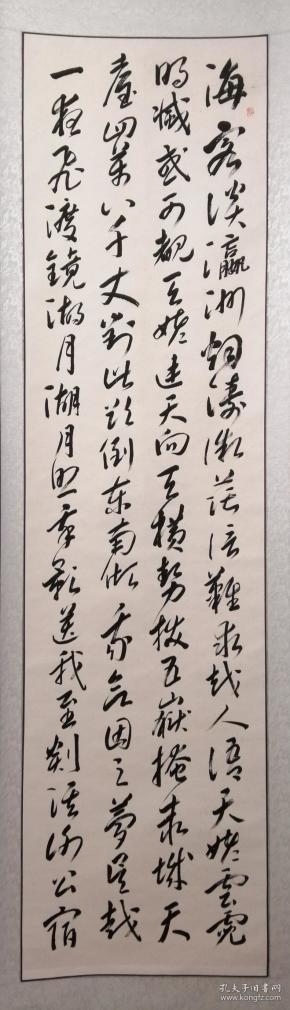 海客淡瀛洲烟涛微茫信難求越人语天姥雲霓
明滅或可覩天姥連天向天横勢拔五嶽掩赤城天
臺四萬八千丈对此欲倒东南倾我欲因之夢吴越
一夜飞渡鏡湖月湖月照我影送我至剡溪谢公宿
孔夫子旧书网
www.kongfz.com